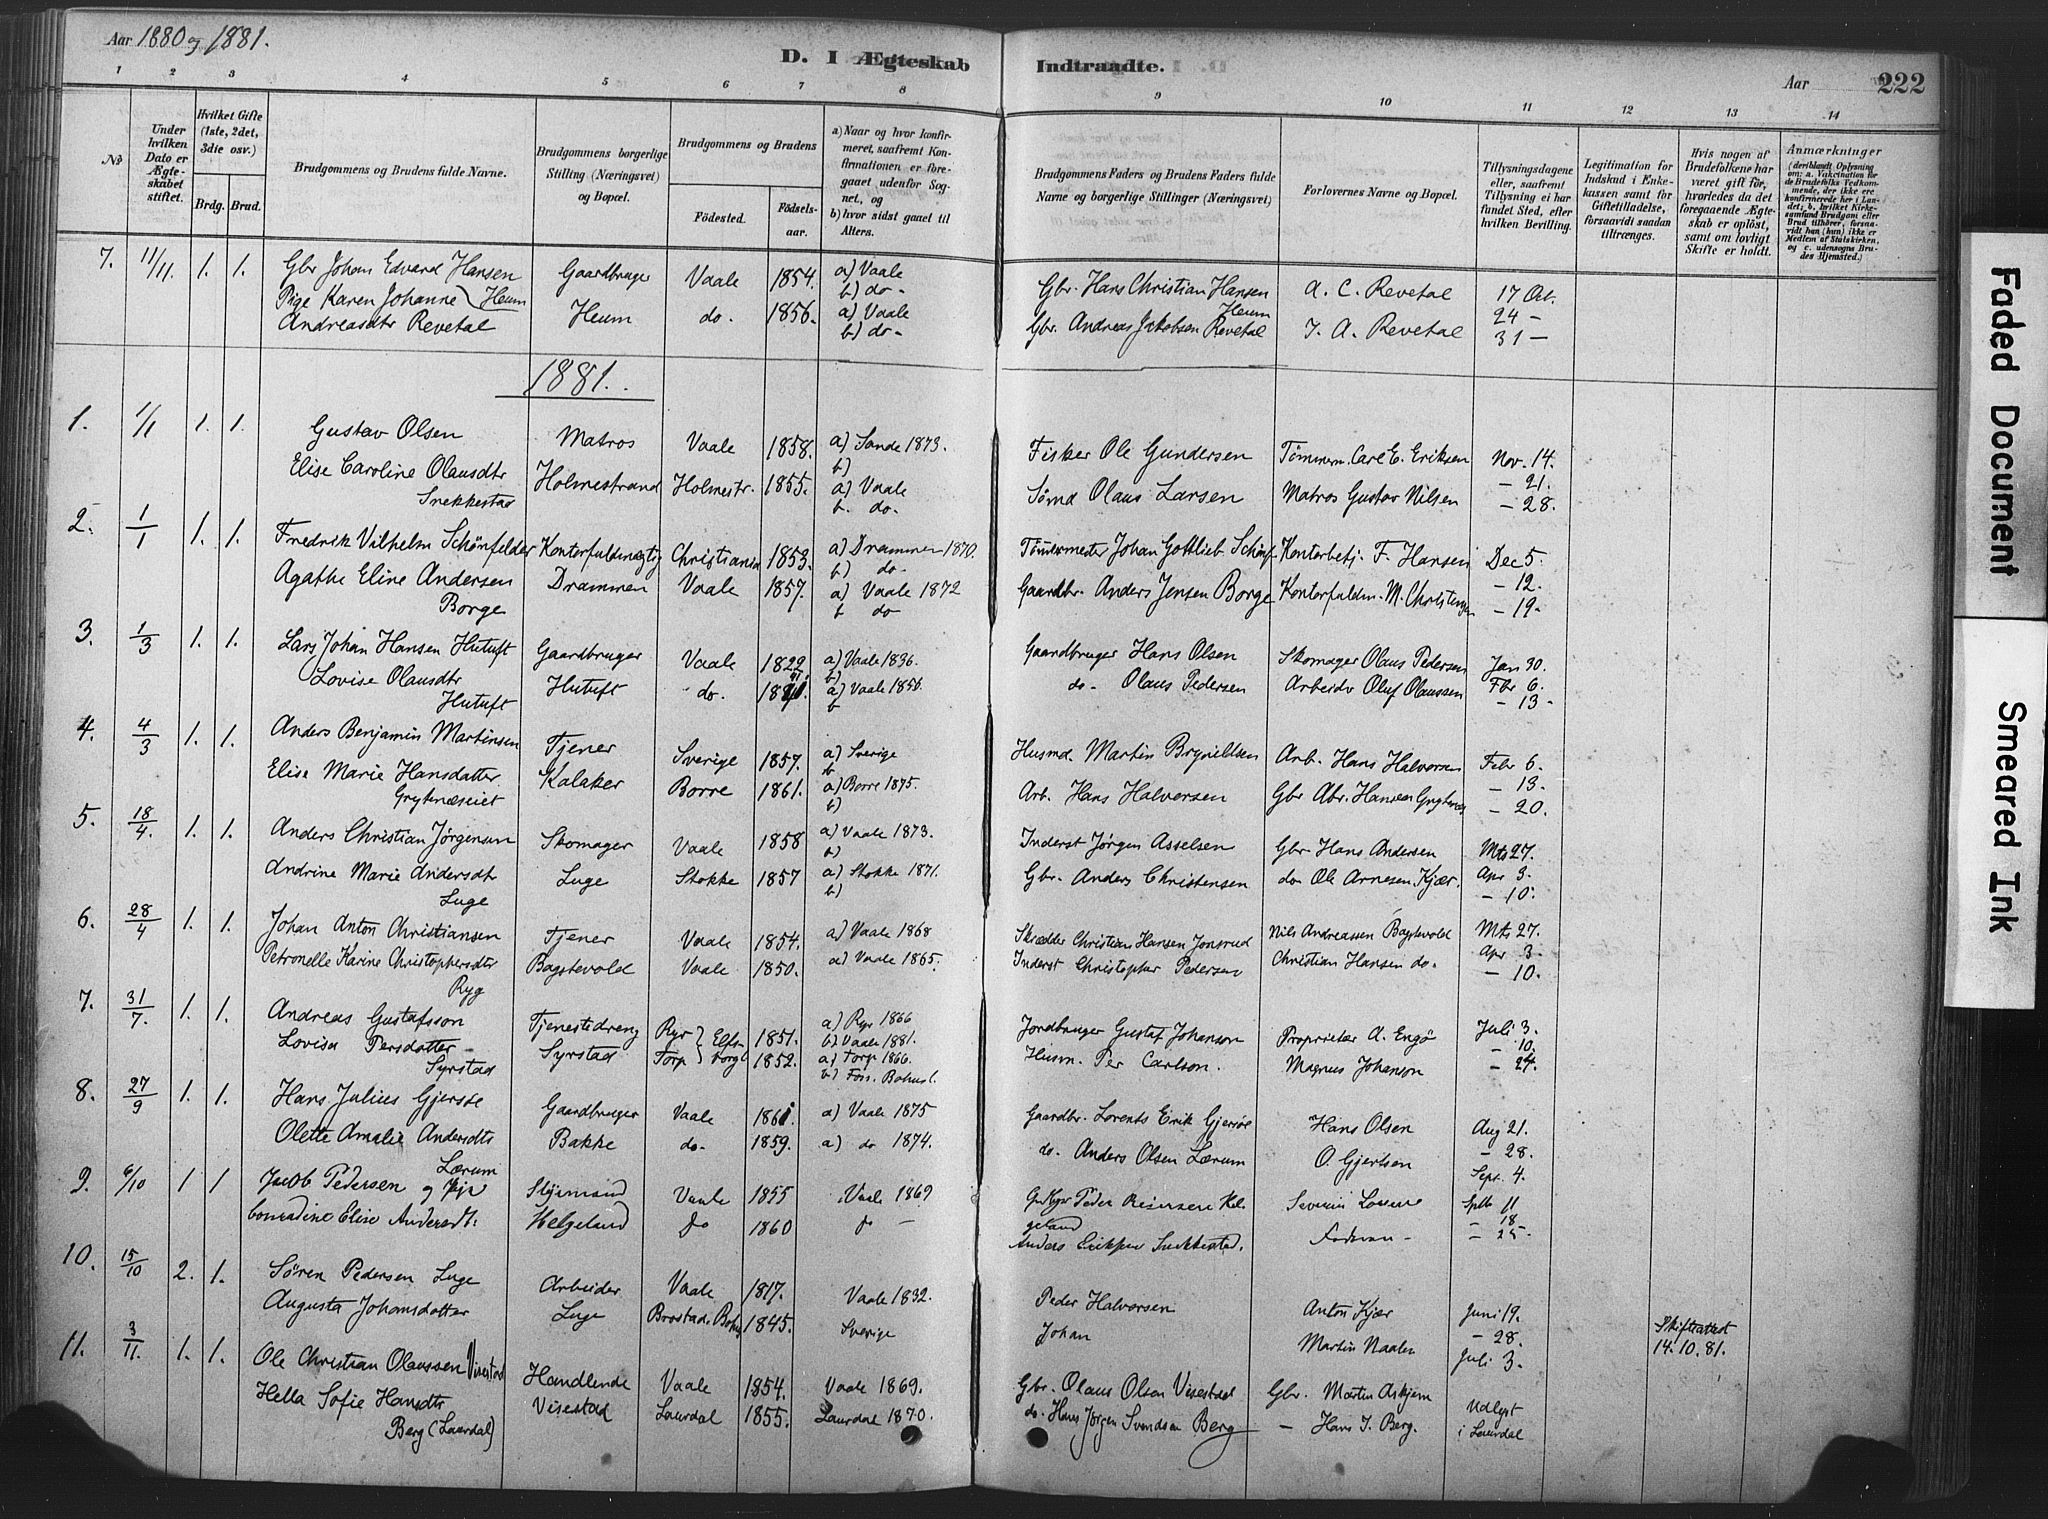 Aar 1880 og 1881.
D. I Ægteskab Indtraadte.
Aar 222
1 2 3 4 5 6 7 8 9 10 11 12 13 14
No
Under hvilken Dato er Ægteskabet stiftet.
Hvilket Gifte (1ste, 2det, 3die osv.)
Brdg. Brud.
Brudgommens og Brudens fulde Navne.
Brudgommens borgerlige Stilling (Næringsvei) og Bopæl.
Brudgommens og Brudens
Födested. Födselsaar.
a) Naar og hvor konfirmeret, saafremt Konfirmationen er foregaaet udenfor Sognet, og
b) hvor sidst gaaet til Alters.
Brudgommens Faders og Brudens Faders fulde Navne og borgerlige Stillinger (Næringsvei)
Forlovernes Navne og Bopæl.
Tillysningsdagene eller, saafremt Tillysning ei har fundet Sted, efter hvilken Bevilling.
Legitimation for Indskud i Enkekassen samt for Giftetilladelse, forsaavidt saadan tiltrænges.
Hvis nogen af Brudefolkene har været gift för, hvorledes da det foregaaende Ægteskab er oplöst, samt om lovligt Skifte er holdt.
Anmærkninger
(deriblandt Oplysning om: a. Vakcination for de Brudefolks Vedkommende, der ikke ere konfirmerede her i Landet; b. hvilket Kirkesamfund Brudgom eller Brud tilhörer, forsaavidt han (hun) ikke er Medlem af Statskirken, og c. udensogns Brudes Hjemsted.)
7. 11/11. 1. 1. Gbr Johan Edvard Hansen Heum Gaardbruger Vaale 1854. a) Vaale b) do- Gbr. Hans Christian Hansen Heum A. C. Revetal 17 Oct.
Pige Karen Johanne Andreasdtr Revetal Heum do. 1856. a) Vaale b) do- Gbr. Andreas Jakobsen Revetal J. A. Revetal 24 - 31 -
1881.
1. 1/1 1. 1. Gustav Olsen Matros Vaale 1858. a) Sande 1873. b) Fisker Ole Gundersen Tömmerm. Carl E. Eriksen Nov. 14.
Elise Caroline Olausdtr Snekkestad Holmestrand Holmestr. 1855. a) Vaale b. do- Sömd Olaus Larsen Matros Gustav Nilsen - 21. - 28.
2. 1/1 1. 1. Fredrik Vilhelm Schönfelder Kontorfuldmægtig Christiania 1853. a) Drammen 1870. b) do- Tömermester Johan Gottlieb Schönf Kontorbetj. F. Hansen Dec 5.
Agathe Eline Andersen Borge Drammen Vaale 1857. a) Vaale 1872 b do Gaardbr. Anders Jensen Borge Kontorfuldm. M. Christensen - 12. - 19-
3. 1/3 1. 1. Lars Johan Hansen Hutuft Gaardbruger Vaale 1822 a) Vaale 1836. b) Gaardbruger Hans Olsen Skomager Olaus Pedersen Jan 30.
Lovise Olausdtr Hutuft Hutuft do. a) Vaale 1856. b do- Olaus Pedersen Arbeider Oluf Olaussen Fbr 6. - 13-
4. 4/3 1. 1. Anders Benjamin Martinsen Tjener Sverige 1857. a) Sverige b Husmd. Martin Brynildsen Arb. Hans Halvorsen Febr 6.
Elise Marie Hansdatter Grytenæseiet Kalaker Borre 1861. a) Borre 1875. b) Arb. Hans Halversen Gbr Abr. Hansen - 13. - 20.
5. 18/4. 1. 1. Anders Christian Jörgensen Skomager Vaale 1858 a) Vaale 1873. b) Inderst Jörgen Asselsen Gbr Hans Andersen Mts 27.
Andrine Marie Andersdtr Luge Luge Stokke 1857 a) Stokke 1871. b) Gbr. Anders Christensen do Ole Arnesen Kjær. Apr 3. - 10.
6. 28/4 1. 1. Johan Anton Christiansen Tjener Vaale 1854. a) Vaale 1868 Skrædder Christian Hansen Jonsrud Nils Andreassen Bagstevold Mts 27.
Petronelle Karine Christophersdtr Ryg Bagstevold Vaale 1850. a) Vaale 1865. Inderst Christopher Pedersen Christian Hansen do. Apr 3. - 10.
7. 31/7. 1. 1. Andreas Gustafsson Tjenestedreng Ryr 1851. a) Ryr 1866 b) Vaale 1881. Jordbruger Gustaf Johanson Proprietær A. Engö Juli 3.
Lovisa Persdotter Syrstad Syrstad Torp 1852. a) Torp 1866. b) Fos. Bohusl. Husm. Per Carlson. Magnus Johanson - 10. - 24.
8. 27/9 1. 1. Hans Julius Gjersöe Gaardbruger Vaale 1861. a) Vaale 1875 Gaardbr. Lorents Erik Gjersöe Hans Olsen Aug 21.
Olette Amalie Andersdtr Lærum Bakke do- 1859. a) do 1874. do. Anders Olsen Lærum O. Gjertsen - 28. Sept. 4.
9. 6/10 1 1 Jacob Pedersen og Pige Styrmand Vaale 1855 Vaale 1869 Peder Reiersen Helgeland Severin Sptb 11
Conradine Elise Andersdt: Helgeland do 1860 do - Anders Snekkestad. - 18 - 25-
10. 15/10 2. 1. Sören Pedersen Luge Arbeider Vaale 1817. Vaale 1832. Peder Halvorsen Anton Kjær Juni 19.
Augusta Johansdatter Luge Brostad. Bohus 1845. Sverige Johan Martin Naalen - 28. Juli 3. Skifteattest 14. 10. 81.
11. 3/11. 1. 1. Ole Christian Olaussen Visestad Handlende Vaale 1854. Vaale 1869. Gbr. Olaus Olsen Visestad Gbr. Martin Askjem
Hella Sofie Hansdtr Berg (Laurdal) Visestad Laurdal 1855. Laurdal 1870. do. Hans Jörgen Svendsen Berg - Hans J. Berg. Udlyst i Laurdal
Faded Document
Smeared Ink